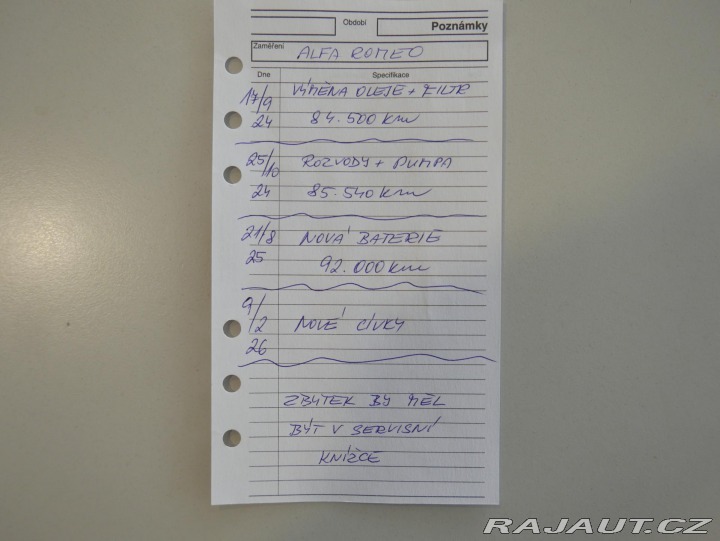 Období
Poznámky
Zaměření
ALFA ROMEO
Dne
Specifikace
17/9 VÝMĚNA OLEJE + FILTR
24 84.500 km
25/10 ROZVODY + PUMPA
24 85.540 km
21/8 NOVÁ BATERIE
25 92.000 km
9/2 NOVÉ CÍVKY
26
ZBYTEK BY MĚL
BÝT V SERVISNÍ
KNÍŽCE
RAJAUT.CZ